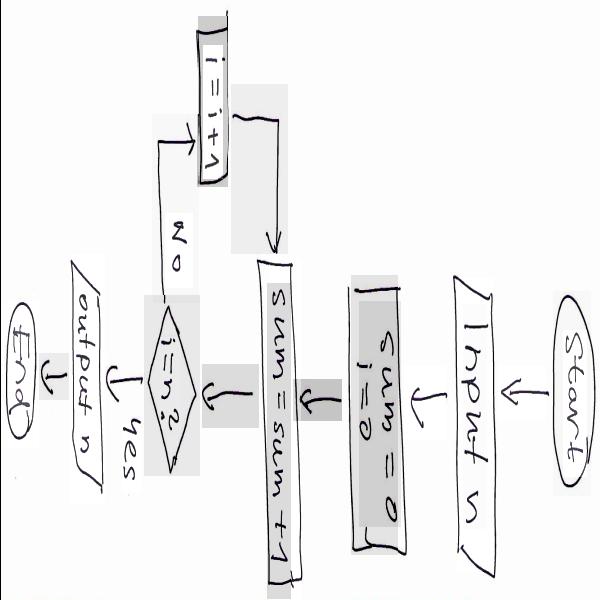 Start
Input n
sum = 0
i = 0
sum = sum + 1
i = n?
No
i = i + 1
yes
output n
End